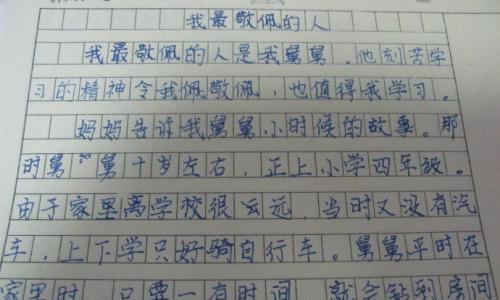 我最敬佩的人
我最敬佩的人是我舅舅.他刻苦学
习的精神令我佩敬佩,也值得我学习。
妈妈告诉我舅舅小时候的故事。那
时舅舅十岁左右,正上小学四年级。
由于家里离学校很远,当时又没有汽
车,上下学只好骑自行车。舅舅平时在
家里时,只要一有时间,就会钻到房间